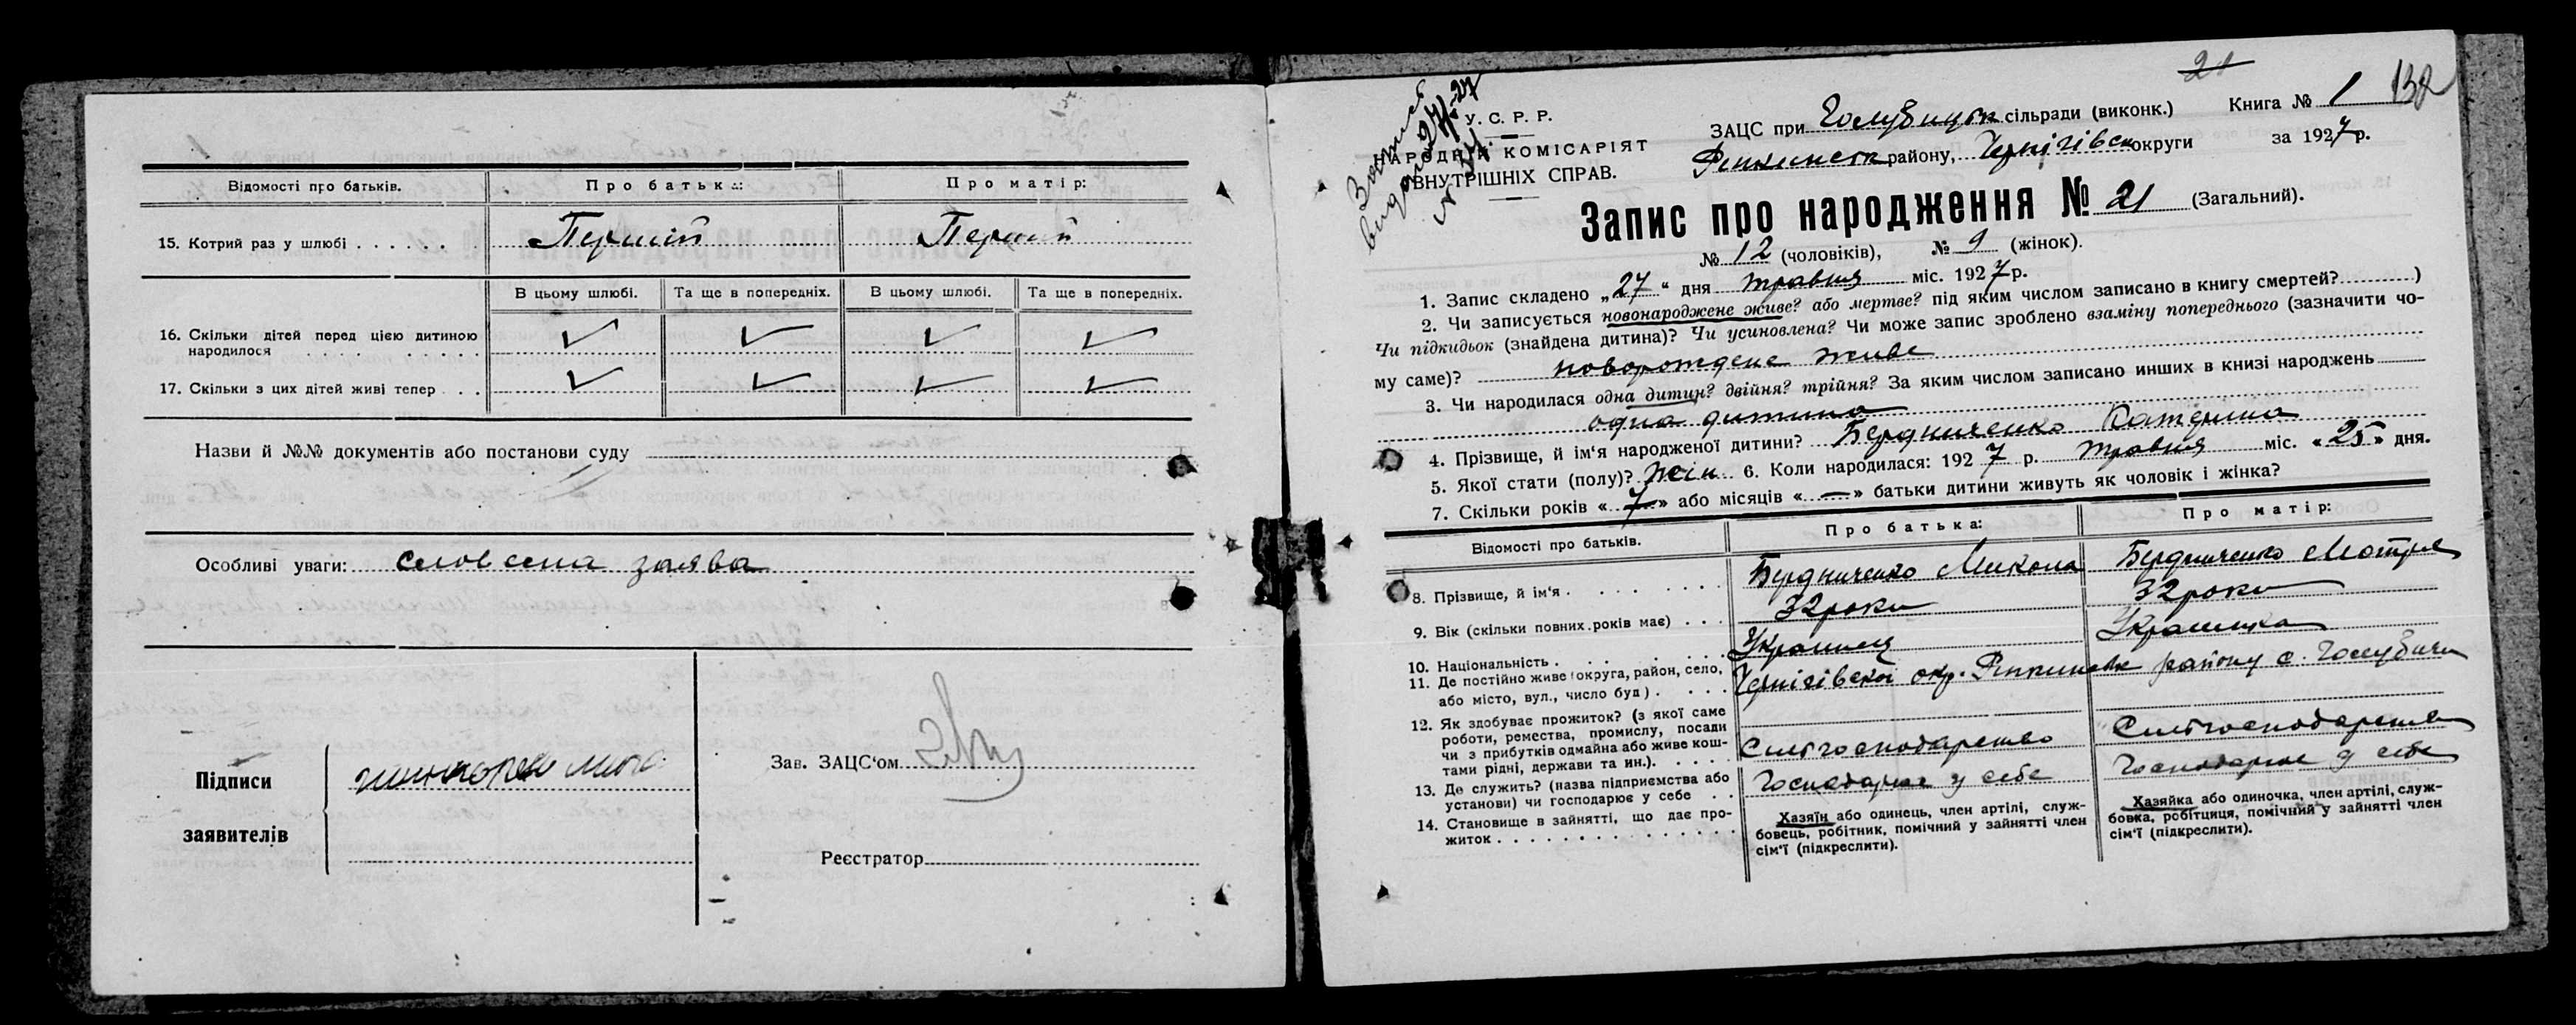 Відомості про батьків.
Про батька:
Про матір:
15. Котрий раз у шлюбі . . . . . .
Перший
Перший
В цьому шлюбі.
Та ще в попередніх.
В цьому шлюбі.
Та ще в попередніх.
16. Скільки дітей перед цією дитиною
народилося . . . . . . . . .
17. Скільки з цих дітей живі тепер . . .
Назви й №№ документів або постанови суду
Особливі уваги: словесна заява
Підписи
заявителів
Зав. ЗАЦС'ом
Реєстратор
21
132
У. С. Р. Р.
НАРОДНІЙ КОМІСАРІЯТ
ВНУТРІШНІХ СПРАВ.
ЗАЦС при Голубицьк сільради (виконк.)
Книга № 1
Ріпкинськ району, Чернігівськ округи
за 1927 р.
Запис про народження № 21 (Загальний).
№ 12 (чоловіків), № 9 (жінок).
1. Запис складено „27“ дня травня міс. 1927 р.
2. Чи записується новонароджене живе? або мертве? під яким числом записано в книгу смертей? )
Чи підкидьок (знайдена дитина)? Чи усиновлена? Чи може запис зроблено взаміну попереднього (зазначити чо-
му саме)? новорождене живе
3. Чи народилася одна дитин? двійня? трійня? За яким числом записано инших в книзі народжень
одна дитина
4. Прізвище, й ім'я народженої дитини? Бердниченко Катерина
5. Якої стати (полу)? жін 6. Коли народилася: 1927 р. травня міс. «25» дня.
7. Скільки років «7» або місяців «—» батьки дитини живуть як чоловік і жінка?
Відомості про батьків.
Про батька:
Про матір:
8. Прізвище, й ім'я . . . . . .
Бердниченко Микола
Бердниченко Мотря
9. Вік (скільки повних років має) . . .
32 роки
32 роки
10. Національність . . . . . .
Українець
Українка
11. Де постійно живе (округа, район, село,
або місто, вул., число буд) . . . .
Чернігівської окр. Ріпкинськ району с. Голубичи
12. Як здобуває прожиток? (з якої саме
роботи, ремества, промислу, посади
чи з прибутків одмайна або живе кош-
тами рідні, держави та ин.). . . . .
Сільгосподарство
Сільгосподарство
13. Де служить? (назва підприємства або
установи) чи господарює у себе . .
Господарює у себе
Господарює у себе
14. Становище в зайнятті, що дає про-
житок . . . . . . . . . . . . .
Хазяїн або одинець, член артілі, служ-
бовець, робітник, помічний у зайнятті член
сім'ї (підкреслити).
Хазяйка або одиночка, член артілі, служ-
бовка, робітциця, помічний у зайнятті член
сім'ї (підкреслити).